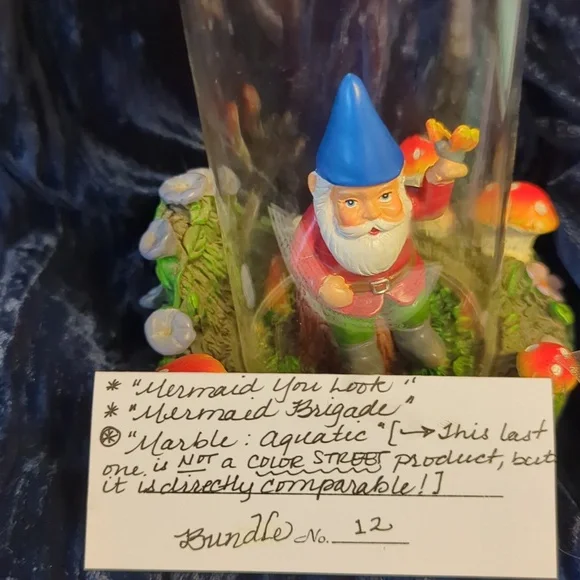 * "Mermaid You Look"
* "Mermaid Brigade"
⊛ "Marble: aquatic" [→This last
one is NOT a COLOR STREET product, but
it is directly comparable!]
Bundle No. 12